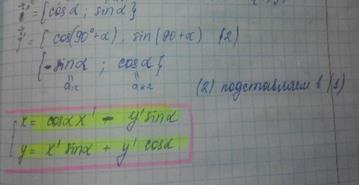 = {cosα ; sinα}
= { cos(90°+α) ; sin(90+α) (2)
{-sinα ; cosα}
a₁₂ a₂₂
(2) подставляем в (1)
x = cosα x' - y' sinα
y = x' sinα + y' cosα